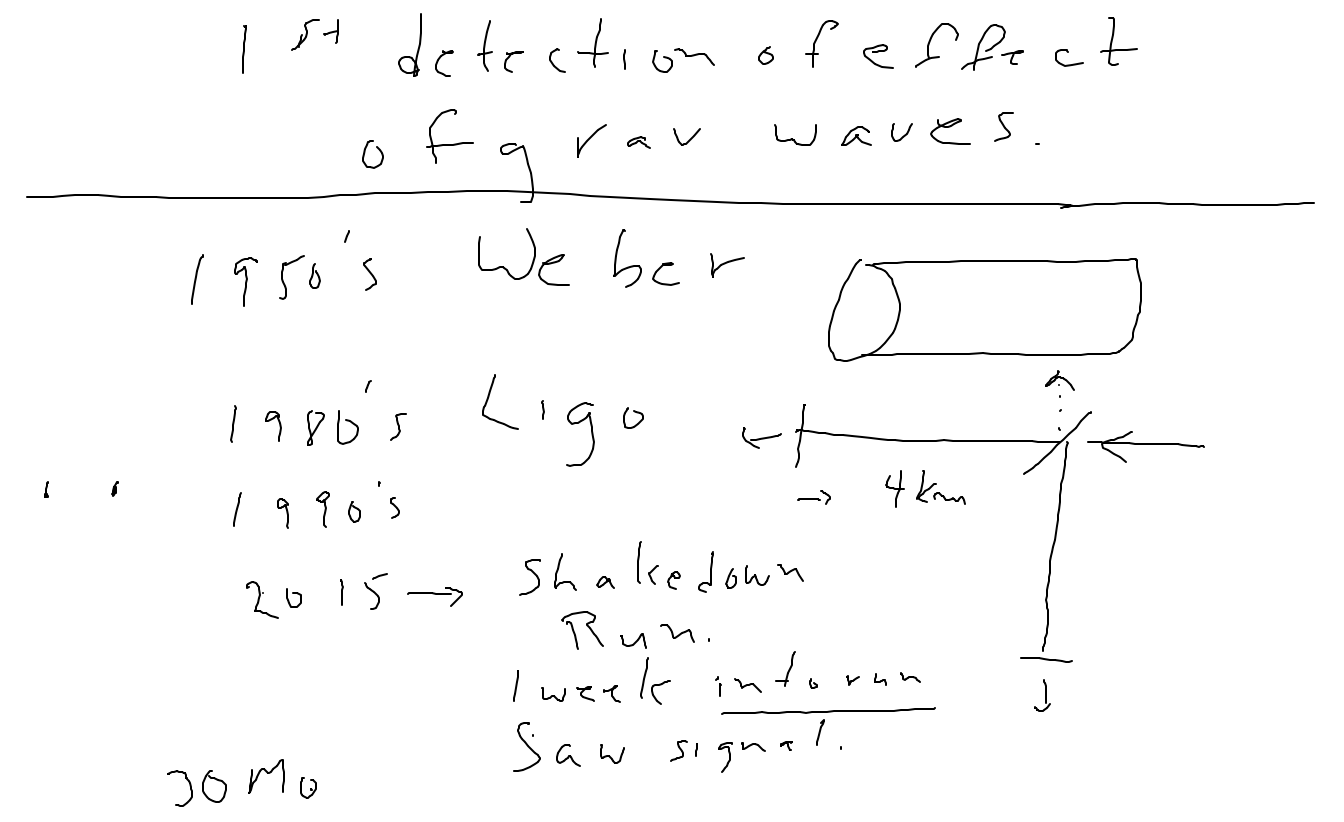 1st detection of effect
of grav waves.
1950's Weber
1980's Ligo
1990's
4km
2015 → Shakedown
Run.
1 week into run
Saw signal.
30 Mo